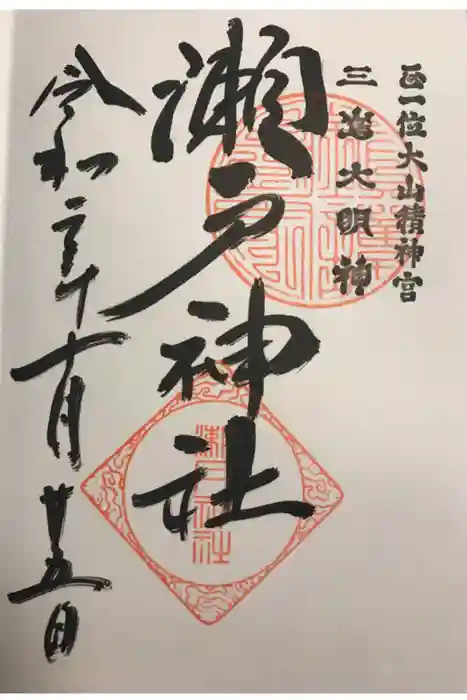 正一位大山積神宮
三嶌大明神
瀬戸神社
瀬戸神社
令和二年十月廿五日